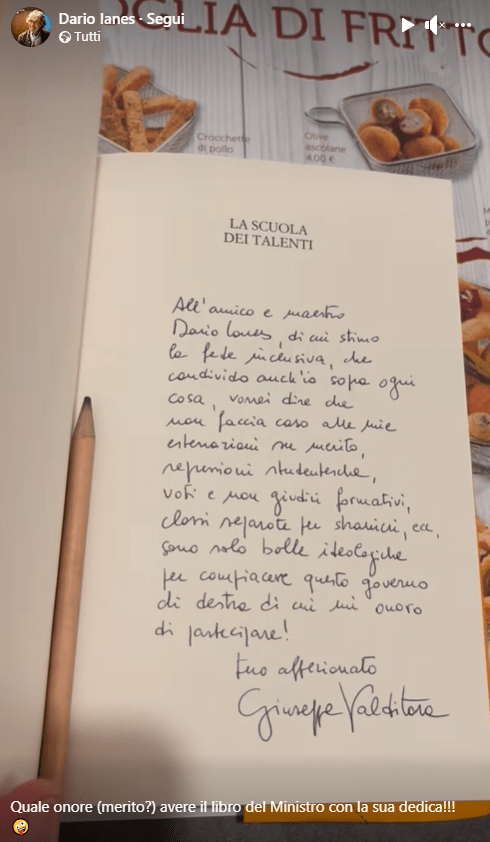 Dario Ianes · Segui
Tutti
OGLIA DI FRITTO
Crocchette
di pollo
Olive
ascolane
4,00 €
LA SCUOLA
DEI TALENTI
All'amico e maestro
Dario Ianes, di cui stimo
la fede inclusiva, che
condivido anch'io sopra ogni
cosa, vorrei dire che
non faccia caso alle mie
esternazioni su merito,
repressioni studentesche,
voti e non giudizi formativi,
classi separate per stranieri, ecc,
sono solo bolle ideologiche
per compiacere questo governo
di destra di cui mi onoro
di partecipare!
tuo affezionato
Giuseppe Valditara
Quale onore (merito?) avere il libro del Ministro con la sua dedica!!!
🤪